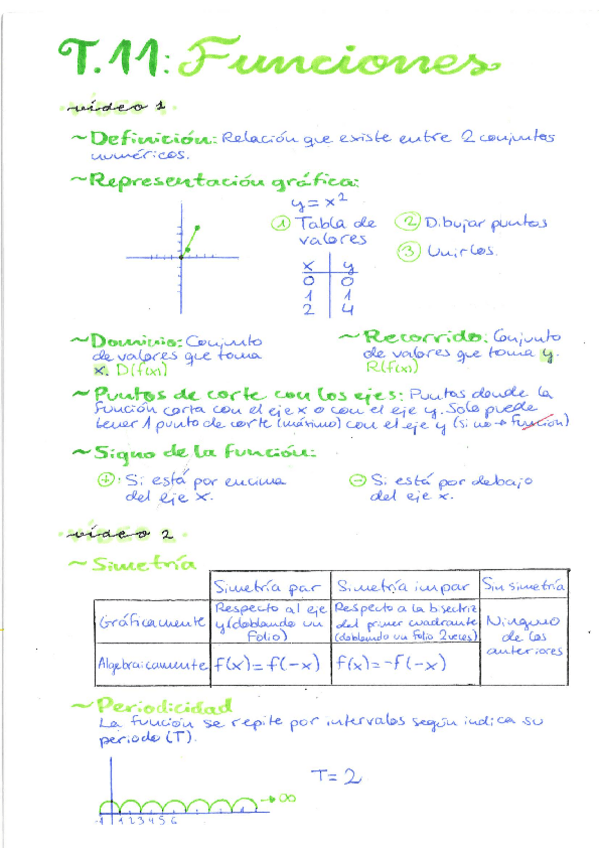 T.11: Funciones
vídeo 1
~Definición: Relación que existe entre 2 conjuntos
numéricos.
~Representación gráfica:
y = x²
① Tabla de
valores
② Dibujar puntos
③ Unirlos.
x | y
0 | 0
1 | 1
2 | 4
~Dominio: Conjunto
de valores que toma
x. D(f(x))
~Recorrido: Conjunto
de valores que toma y.
R(f(x))
~Puntos de corte con los ejes: Puntos donde la
función corta con el eje x o con el eje y. Solo puede
tener 1 punto de corte (máximo) con el eje y (si no → función)
~Signo de la función:
⊕: Si está por encima
del eje x.
⊖ Si está por debajo
del eje x.
vídeo 2
~Simetría
Simetría par | Simetría impar | Sin simetría
Gráficamente | Respecto al eje y (doblando un folio) | Respecto a la bisectriz del primer cuadrante (doblando un folio 2 veces) | Ninguno de los anteriores
Algebraicamente | f(x) = f(-x) | f(x) = -f(-x)
~Periodicidad
La función se repite por intervalos según indica su
periodo (T).
T = 2
→ ∞
-1 1 2 3 4 5 6